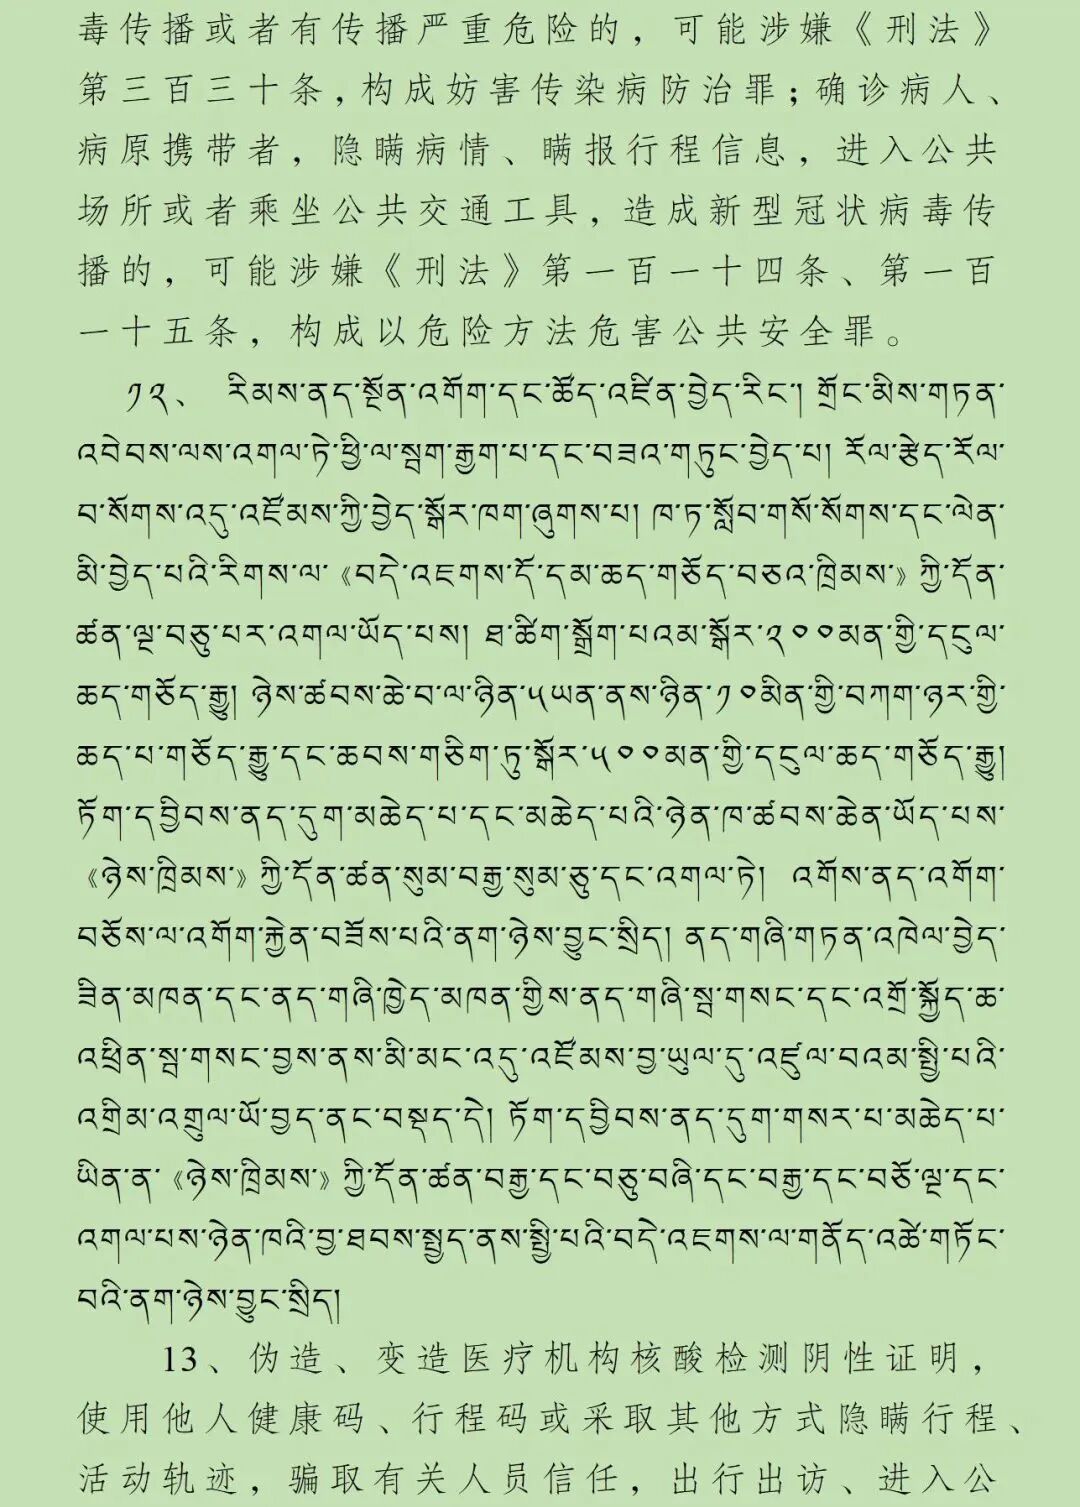 毒传播或者有传播严重危险的，可能涉嫌《刑法》
第三百三十条，构成妨害传染病防治罪；确诊病人、
病原携带者，隐瞒病情、瞒报行程信息，进入公共
场所或者乘坐公共交通工具，造成新型冠状病毒传
播的，可能涉嫌《刑法》第一百一十四条、第一百
一十五条，构成以危险方法危害公共安全罪。
༡༢、 རིམས་ནད་སྔོན་འགོག་དང་ཚོད་འཛིན་བྱེད་རིང་། གྲོང་མིས་གཏན་
འབེབས་ལས་འགལ་ཏེ་ཕྱི་ལ་སྦག་རྒྱག་པ་དང་བཟའ་གཏུང་བྱེད་པ། རོལ་རྩེད་རོལ་
བ་སོགས་འདུ་འཛོམས་ཀྱི་བྱེད་སྒོར་ཁག་ཞུགས་པ། ཁ་ཏ་སློབ་གསོ་སོགས་དང་ལེན་
མི་བྱེད་པའི་རིགས་ལ་《བདེ་འཇགས་དོ་དམ་ཆད་གཅོད་བཅའ་ཁྲིམས་》ཀྱི་དོན་
ཚན་ལྔ་བཅུ་པར་འགལ་ཡོད་པས། ཐ་ཚིག་སྒྲོག་པའམ་སྒོར་༢༠༠མན་གྱི་དངུལ་
ཆད་གཅོད་རྒྱུ། ཉེས་ཚབས་ཆེ་བ་ལ་ཉིན་༥ཡན་ནས་ཉིན་༡༠མིན་གྱི་བཀག་ཉར་གྱི་
ཆད་པ་གཅོད་རྒྱུ་དང་ཆབས་གཅིག་ཏུ་སྒོར་༥༠༠མན་གྱི་དངུལ་ཆད་གཅོད་རྒྱུ།
ཏོག་དབྱིབས་ནད་དུག་མཆེད་པ་དང་མཆེད་པའི་ཉེན་ཁ་ཚབས་ཆེན་ཡོད་པས་
《ཉེས་ཁྲིམས་》ཀྱི་དོན་ཚན་སུམ་བརྒྱ་སུམ་ཅུ་དང་འགལ་ཏེ། འགོས་ནད་འགོག་
བཅོས་ལ་འགོག་རྐྱེན་བཟོས་པའི་ནག་ཉེས་བྱུང་སྲིད། ནད་གཞི་གཏན་འཁེལ་བྱེད་
ཟིན་མཁན་དང་ནད་གཞི་ཁྱེད་མཁན་གྱིས་ནད་གཞི་སྦ་གསང་དང་འགྲོ་སྐྱོད་ཆ་
འཕྲིན་སྦ་གསང་བྱས་ནས་མི་མང་འདུ་འཛོམས་བྱ་ཡུལ་དུ་འཛུལ་བའམ་སྤྱི་པའི་
འགྲིམ་འགྲུལ་ཡོ་བྱད་ནང་བསྡད་དེ། ཏོག་དབྱིབས་ནད་དུག་གསར་པ་མཆེད་པ་
ཡིན་ན་《ཉེས་ཁྲིམས་》ཀྱི་དོན་ཚན་བརྒྱ་དང་བཅུ་བཞི་དང་བརྒྱ་དང་བཅོ་ལྔ་དང་
འགལ་པས་ཉེན་ཁའི་བྱ་ཐབས་སྤྱད་ནས་སྤྱི་པའི་བདེ་འཇགས་ལ་གནོད་འཚེ་གཏོང་
བའི་ནག་ཉེས་བྱུང་སྲིད།
13、伪造、变造医疗机构核酸检测阴性证明，
使用他人健康码、行程码或采取其他方式隐瞒行程、
活动轨迹，骗取有关人员信任，出行出访、进入公